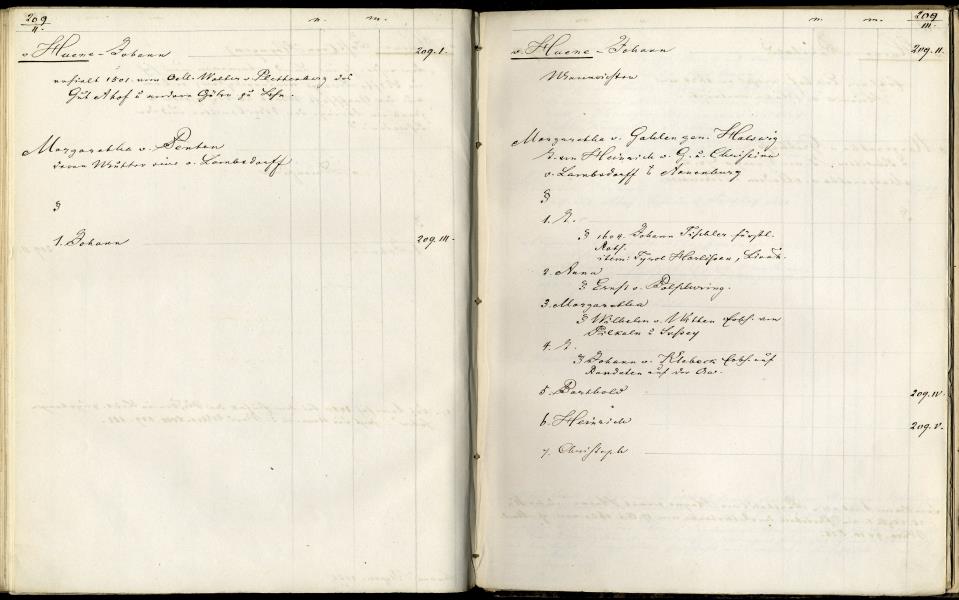 209
II.
n. m.
v. Huene - Johann 209.I.
erhielt 1501. vom O.M. Walter v. Plettenberg das
Gut Ahof u andere Güter zu Lehn.
Margaretha v. Penten
deren Mutter eine v. Lambsdorff
§
1. Johann 209.III.
n. m.
209
III.
v. Huene - Johann 209.II.
Mannrichter
Margaretha v. Gahlen gen. Halswig
T. von Heinrich v. G. u. Christina
v. Lambsdorff
§
1. N.
§ 1604. Johann Tischler fürstl.
Rath.
item:
2. Anna
§ Ernst v.
3. Margaretha
§ Wilhelm v. Vitten Erbh. von
Pilkaln u Sussey
4. N.
§ Johann v. Klebeck Erbh. auf
auf der Aa.
5. Barthold 209.IV.
6. Heinrich 209.V.
7. Christoph